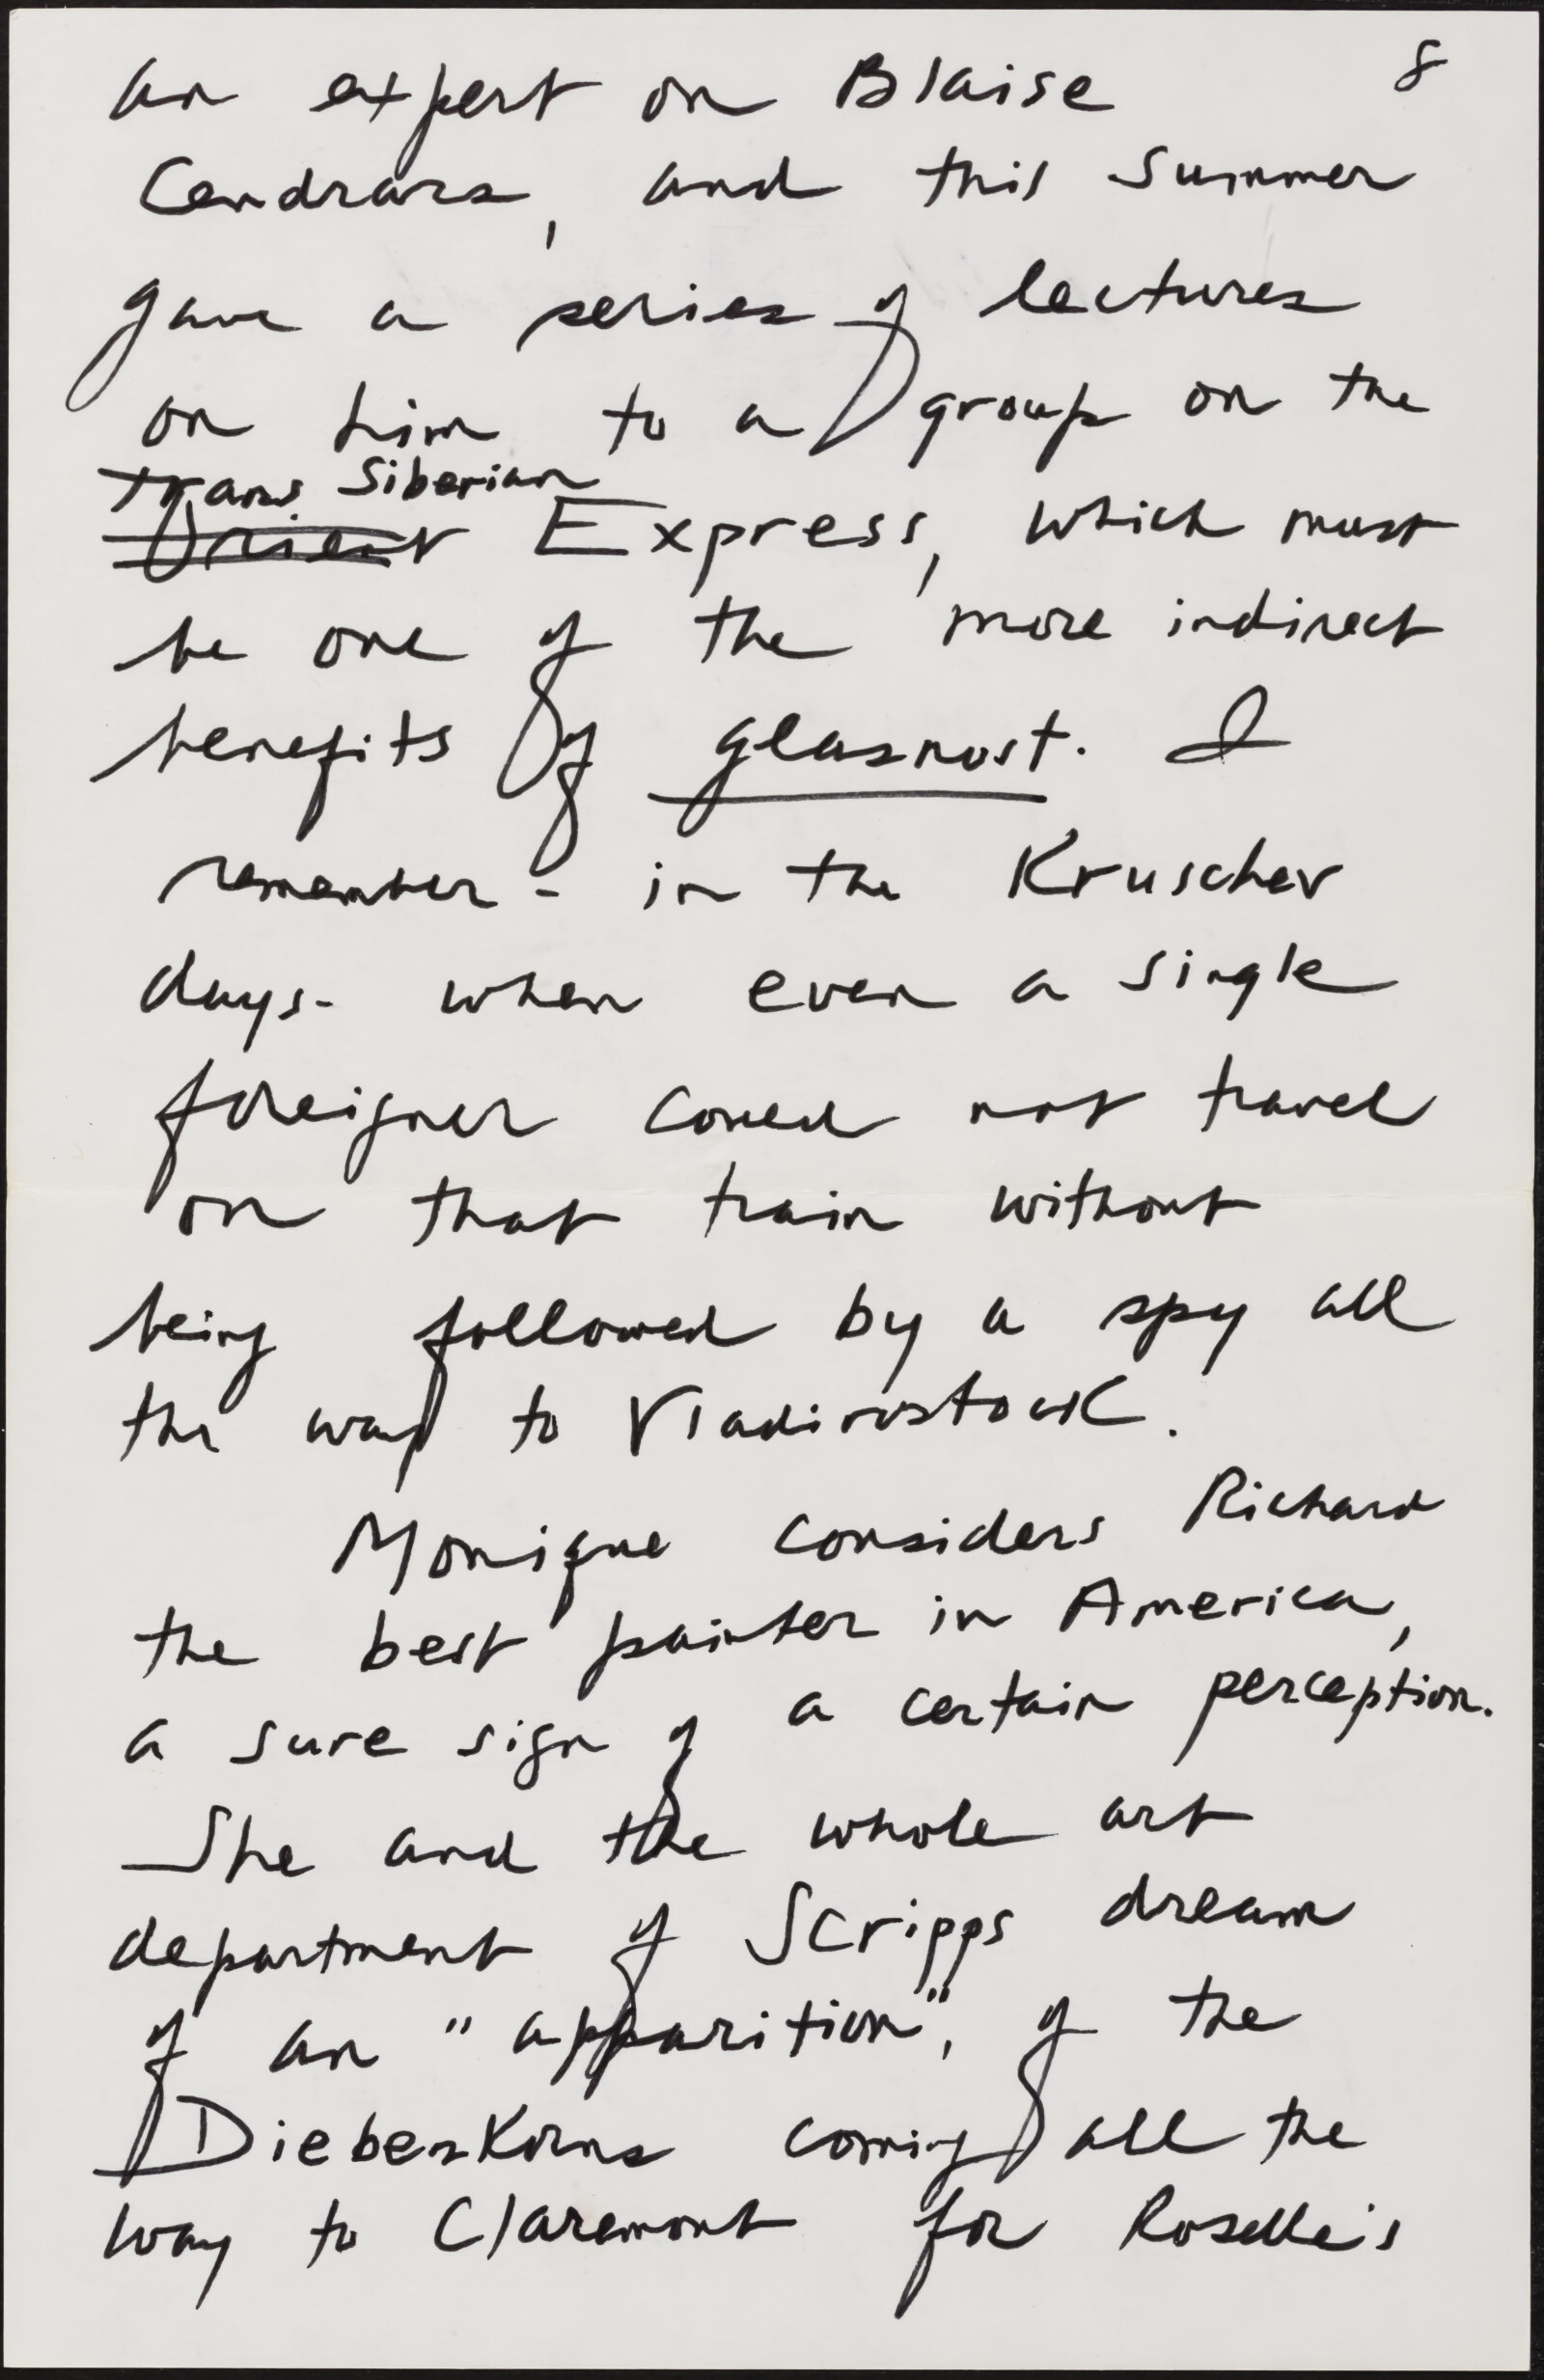 8
an expert on Blaise
Cendrars, and this Summer
gave a series of lectures
on him to a group on the
Trans Siberian
Orient Express, which must
be one of the more indirect
benefits of glasnost. I
remember - in the Kruschev
days - when even a single
foreigner could not travel
on that train without
being followed by a spy all
the way to Vladivostock.
Monique considers Richard
the best painter in America,
a sure sign of a certain perception.
She and the whole art
department of Scripps dream
of an "apparition", of the
Diebenkorns coming all the
way to Claremont for Roselle's